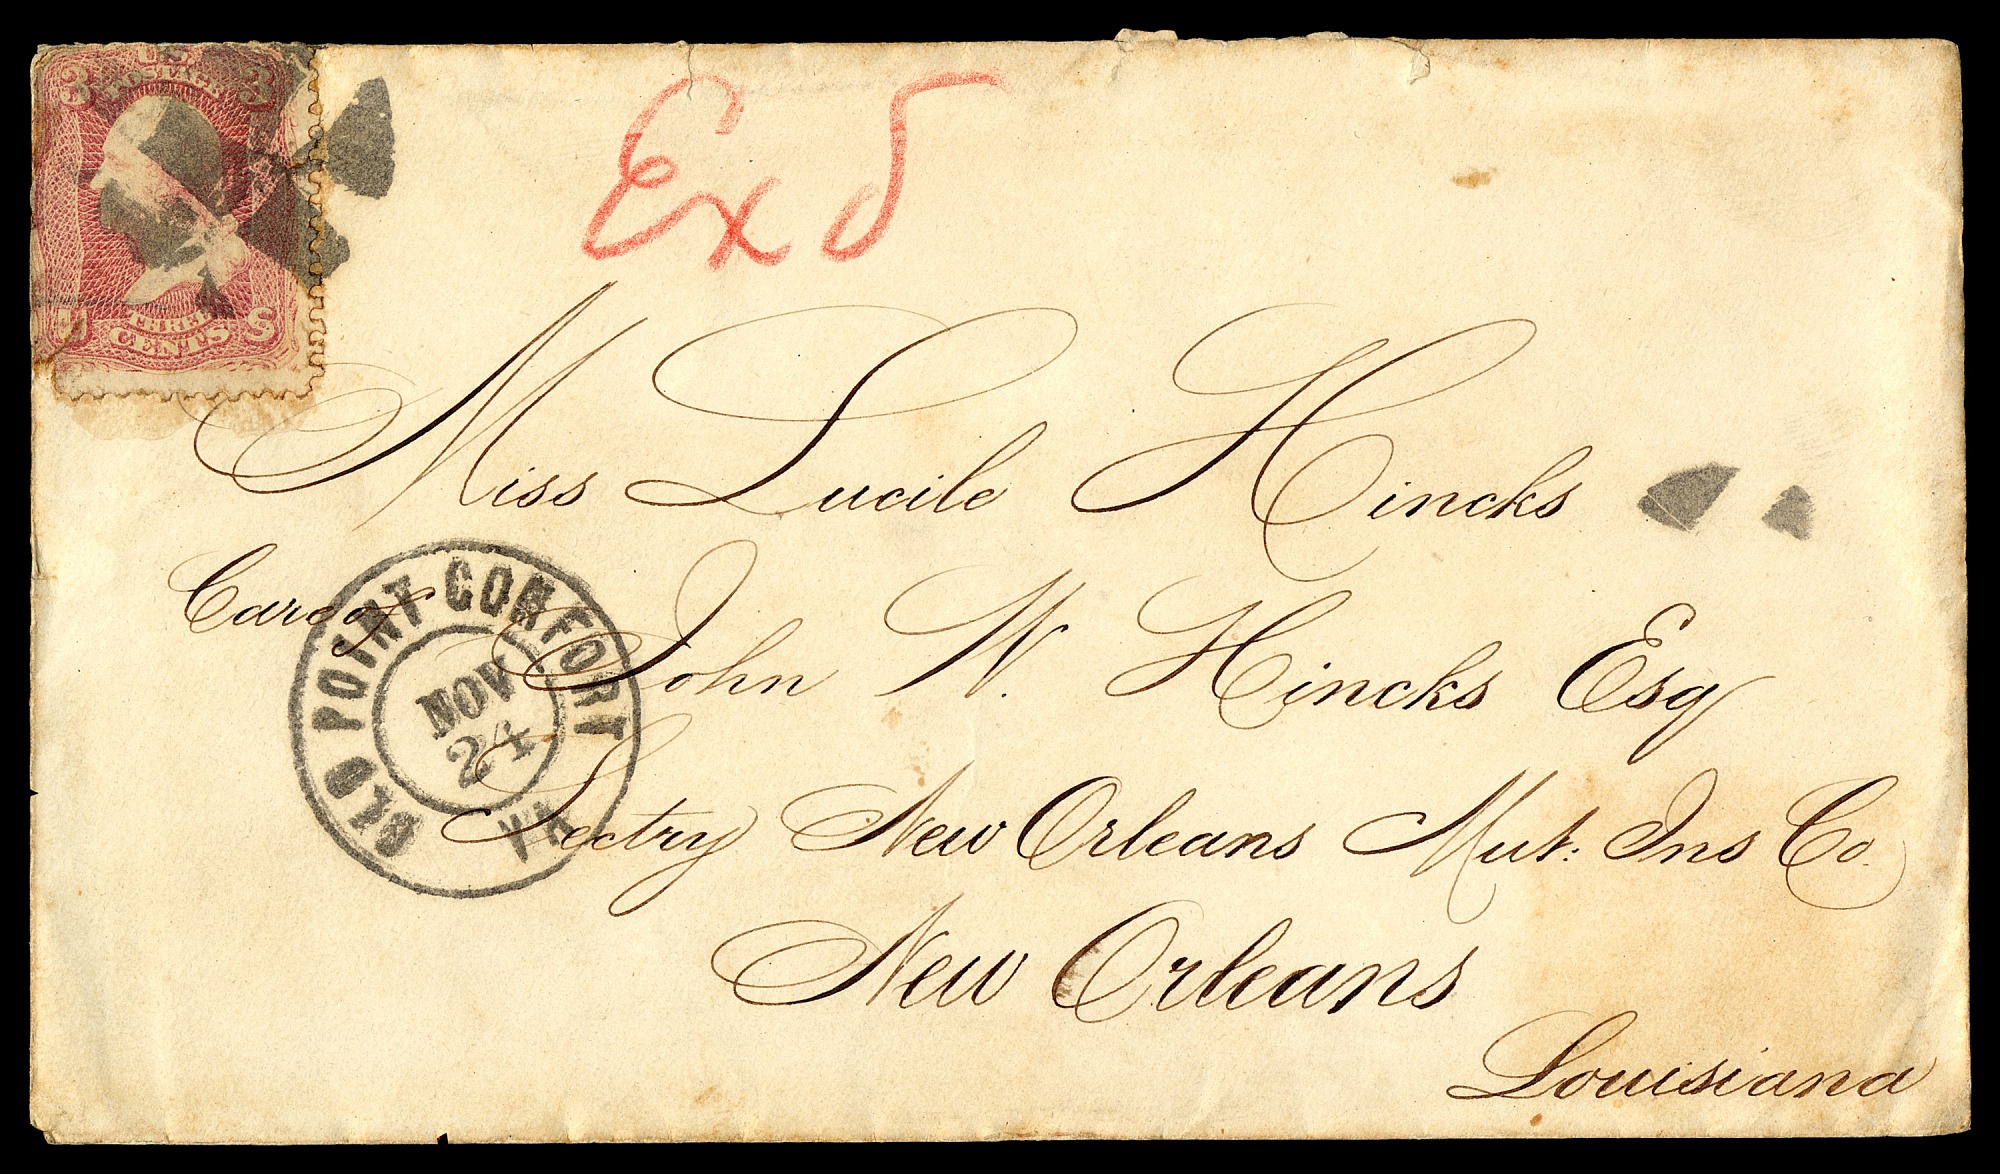 U S
POSTAGE
3 3
U S
THREE
CENTS
Ex
Miss Lucile Hincks
Care of John W. Hincks Esq
Sectry New Orleans Mut: Ins Co.
New Orleans
Louisiana
OLD POINT COMFORT
NOV
24
VA